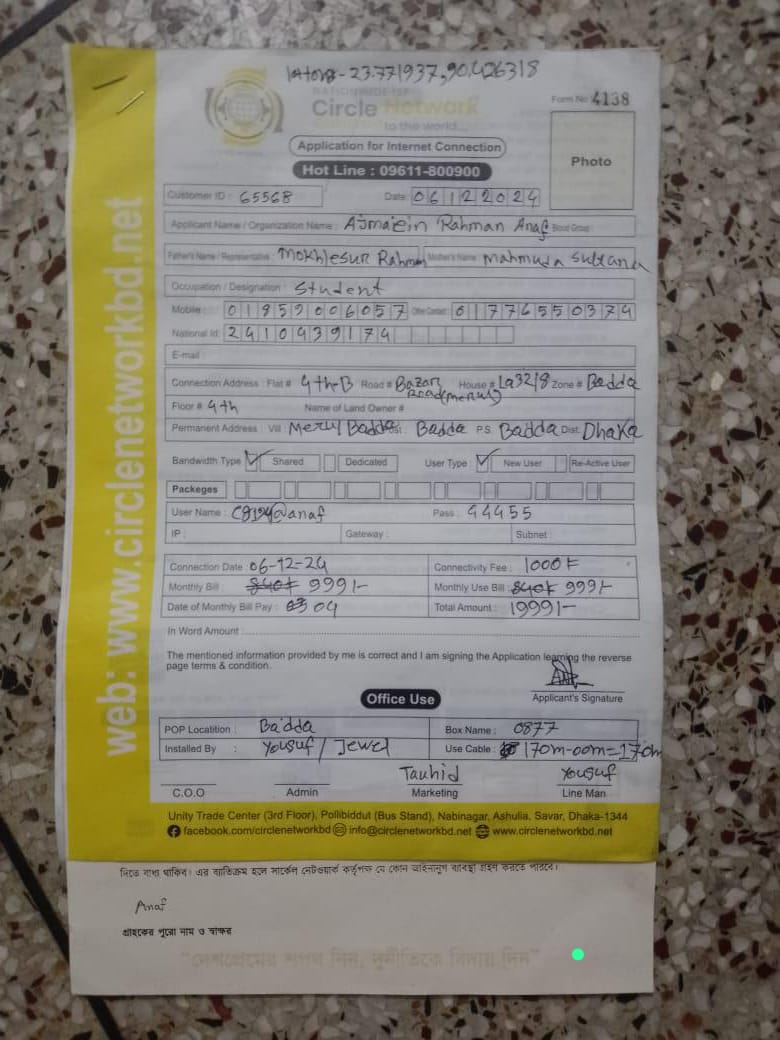 23.771937,90.426318
NATIONWIDE ISP
Circle Network
to the world...
Form No 4138
Application for Internet Connection
Photo
Hot Line : 09611-800900
Customer ID : 65568 Date : 06122024
Applicant Name / Organization Name : Ajmaein Rahman Anaf Blood Group :
Father's Name / Representative : Mokhlesur Rahman Mother's Name : Mahmuda Sultana
Occupation / Designation : Student
Mobile : 01959006057 Other Contact : 01776550374
National Id: 2410939174
E-mail :
Connection Address : Flat # 4th-B Road # Bazar Road(merul) House # La32/8 Zone # Badda
Floor # 4th Name of Land Owner #
Permanent Address : Vill : Merul Badda Badda P.S. Badda Dist. Dhaka
Bandwidth Type Shared Dedicated User Type : New User Re-Active User
Packeges
User Name : @anaf Pass : 44455
IP : Gateway : Subnet :
Connection Date : 06-12-24 Connectivity Fee : 1000৳
Monthly Bill 840৳ 999/- Monthly Use Bill : 840৳ 999/-
Date of Monthly Bill Pay : 04 Total Amount : 1999/-
In Word Amount :
The mentioned information provided by me is correct and I am signing the Application learning the reverse
page terms & condition.
Applicant's Signature
Office Use
POP Locatition : Badda Box Name : 0877
Installed By : Yousuf / Jewel Use Cable : 170m-00m=170m
Tauhid Yousuf
C.O.O Admin Marketing Line Man
Unity Trade Center (3rd Floor), Pollibiddut (Bus Stand), Nabinagar, Ashulia, Savar, Dhaka-1344
facebook.com/circlenetworkbd info@circlenetworkbd.net www.circlenetworkbd.net
web: www.circlenetworkbd.net
দিতে বাধ্য থাকিব। এর ব্যতিক্রম হলে সার্কেল নেটওয়ার্ক কর্তৃপক্ষ যে কোন আইনানুগ ব্যবস্থা গ্রহন করতে পারবে।
Anaf
গ্রাহকের পুরো নাম ও স্বাক্ষর
"দেশপ্রেমের শপথ নিন, দুর্নীতিকে বিদায় দিন"